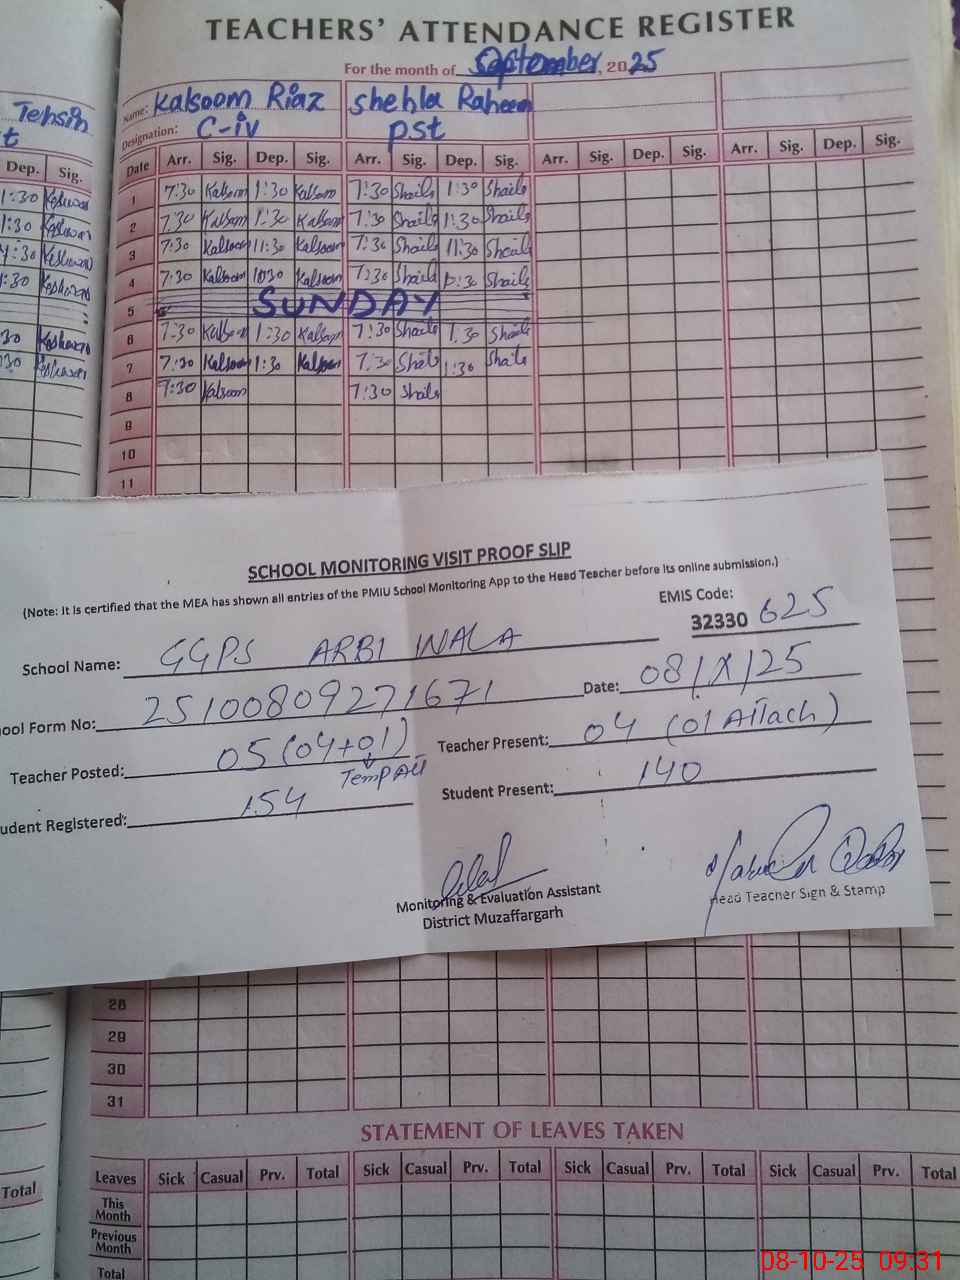 TEACHERS' ATTENDANCE REGISTER
For the month of September, 2025
Tehsin
t
Name: Kalsoom Riaz Shehla Raheem
Designation: C-iv pst
Dep. Sig.
Date Arr. Sig. Dep. Sig. Arr. Sig. Dep. Sig. Arr. Sig. Dep. Sig. Arr. Sig. Dep. Sig.
1:30 Keshwar 1 7:30 Kalsoom 1:30 Kalsoom 7:30 Shaila 1:30 Shaila
1:30 Keshwar 2 7:30 Kalsoom 1:30 Kalsoom 7:30 Shaila 1:30 Shaila
Keshwar 3 7:30 Kalsoom 11:30 Kalsoom 7:30 Shaila 11:30 Shaila
:30 Keshwar 4 7:30 Kalsoom Kalsoom 7:30 Shaila Shaila
5 SUNDAY
30 Keshwar 6 7:30 Kalsoom 1:30 Kalsoom 7:30 Shaila 1:30 Shaila
30 Keshwar 7 7:30 Kalsoom 1:30 Kalsoom 7:30 Shaila 1:30 Shaila
8 7:30 Kalsoom 7:30 Shaila
9
10
11
SCHOOL MONITORING VISIT PROOF SLIP
(Note: It is certified that the MEA has shown all entries of the PMIU School Monitoring App to the Head Teacher before its online submission.)
EMIS Code:
32330 625
School Name: GGPS ARBI WALA
ool Form No: 25100809271671 Date: 08/X/25
Teacher Posted: 05 (04+01) Teacher Present: 04 (01 Attach)
Temp Att
udent Registered: 154 Student Present: 140
Monitoring & Evaluation Assistant
District Muzaffargarh
Head Teacher Sign & Stamp
28
29
30
31
STATEMENT OF LEAVES TAKEN
Leaves Sick Casual Prv. Total Sick Casual Prv. Total Sick Casual Prv. Total Sick Casual Prv. Total
Total
This Month
Previous Month
Total
08-10-25 09:31